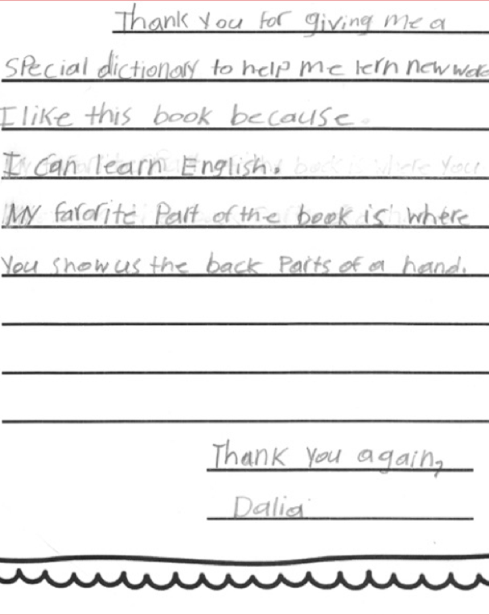 Thank you for giving me a
special dictionary to help me lern new
I like this book because
I can learn English.
My farorite Part of the book is where
You show us the back Parts of a hand.
Thank you again,
Dalia